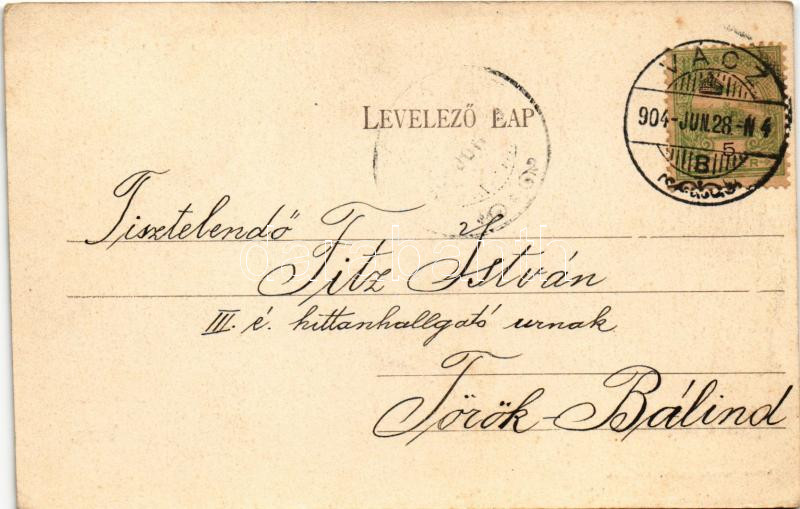 LEVELEZŐ LAP
VÁCZ
904-JUN.28.-N4
B
5
Tisztelendő Fitz István
III. é. hittanhallgató urnak
Török-Bálind
darabanth